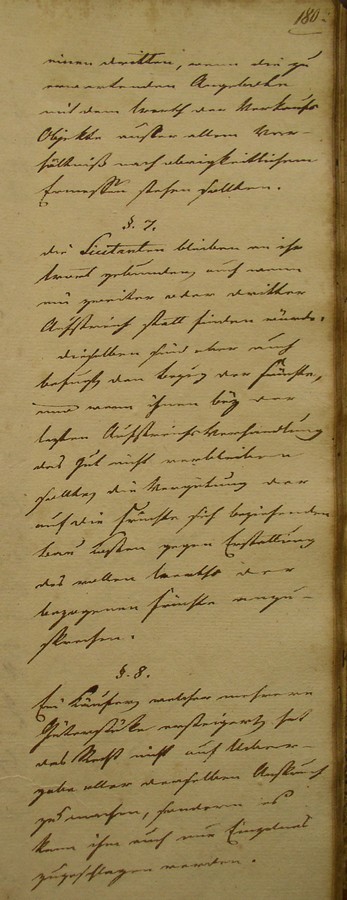 180.
einen dritten, wenn die zu
erwartenden Angebothe
mit dem Werth der Verkaufs
Objekte außer allem Ver-
hältniß nach obrigkeitlichem
Ermessen stehen sollten.
§. 7.
die Licitanten bleiben an ihr
Wort gebunden, auch wenn
ein zweiter oder dritter
Aufstreich statt finden würde.
dieselben sind aber auch
befugt, den Bezug der Früchte,
und wenn ihnen bey der
lezten Aufstreichs Verhandlung
das Gut nicht verbleiben
sollte, die Vergütung der
auf die Früchte sich beziehenden
Bau Kosten gegen Erstattung
des vollen Werths der
bezogenen Früchte anzu-
sprechen.
§. 8.
Ein Käufer, welcher mehrere
Güterstüke ersteigert, hat
das Recht nicht auf Ueber-
gabe aller derselben Anspruch
zu machen, sondern es
kann ihm auch nur Einzelnes
zugeschlagen werden.